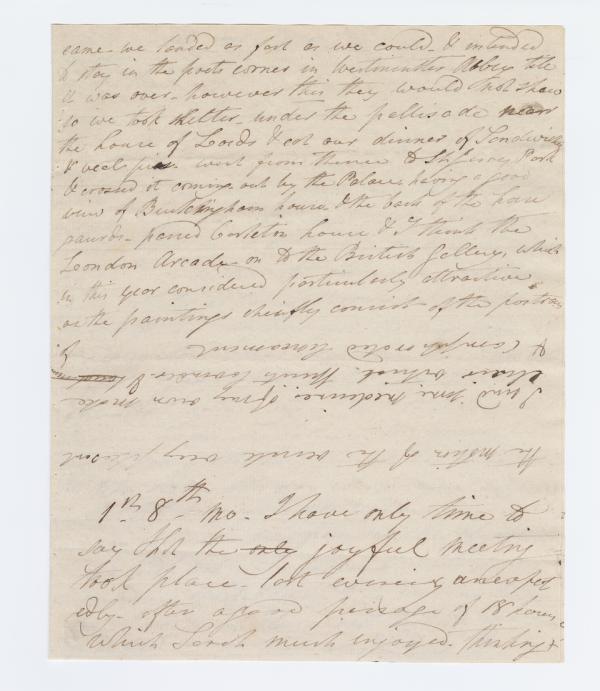 came - we landed as fast as we could - & intended
to stay in the poets corner in Westminster Abbey till
it was over - however this they would not allow
so we took shelter under the pallisade near
the house of Lords & eat our dinner of Sandwiches
& veal pie - went from thence to St James's Park
& crossed it coming out by the Palace, having a good
view of Buckingham house & the back of the horse
guards - passed Carleton house & I think the
London Arcade on to the British Gallery, which
is this year considered particularly attractive
as the paintings chiefly consist of the portraits
1st 8th mo. I have only time to
say that the only joyful meeting
took place last evening unexpect
edly - after a good passage of 18 hours
which Sarah much enjoyed - thinking
the motion of the vessel very pleasant